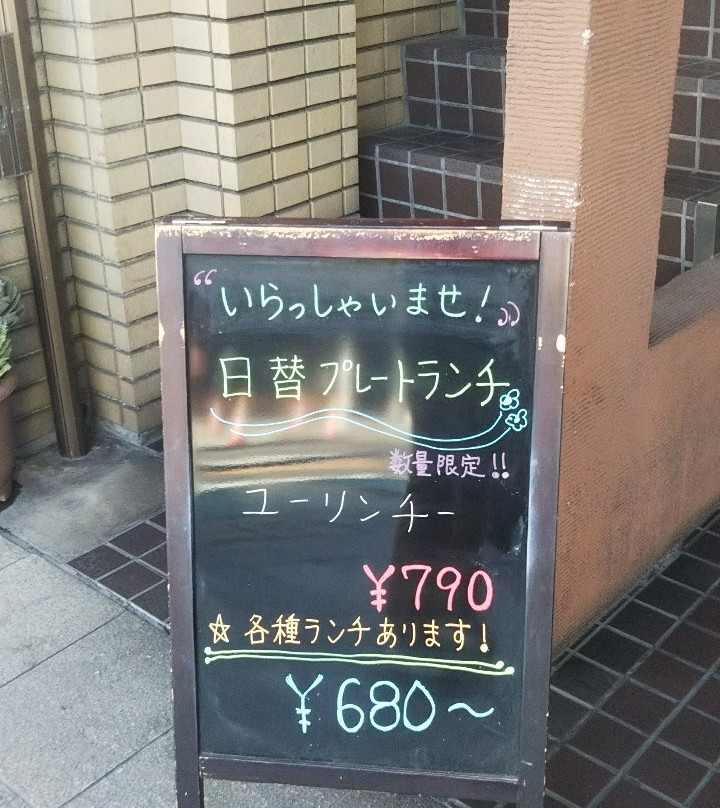 “いらっしゃいませ!”
日替プレートランチ
数量限定!!
ユーリンチー
¥790
☆各種ランチあります!
¥680～